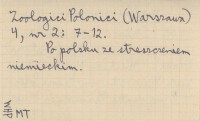 Zoologici Polonici (Warszawa)
4, nr 2: 7-12.
Po polsku ze streszczeniem
niemieckim.
MT